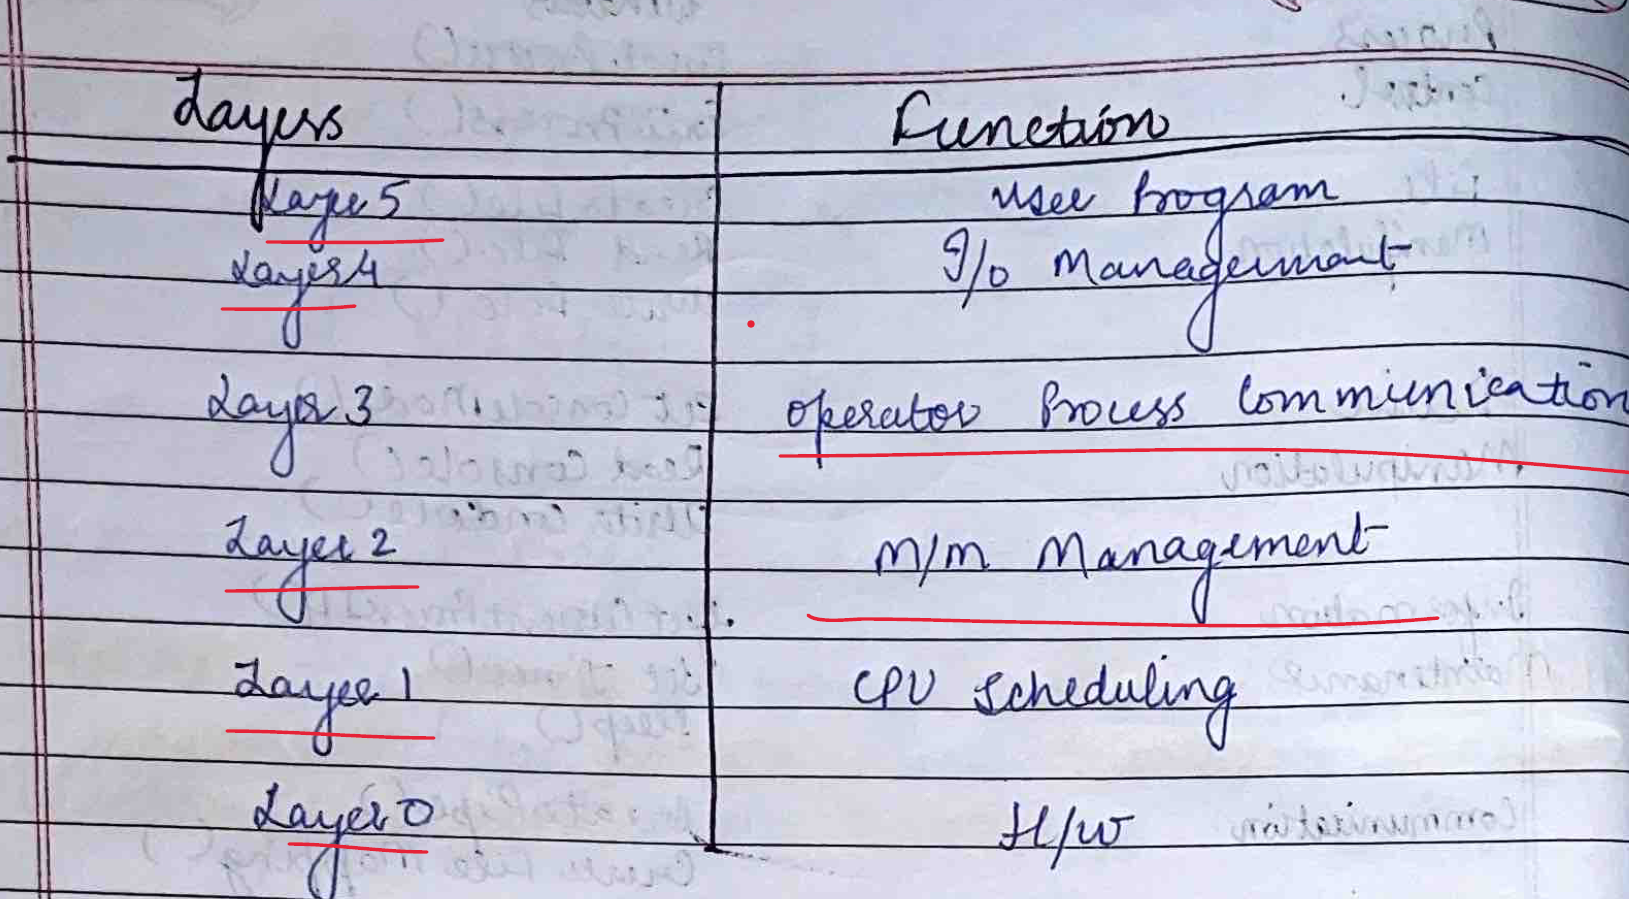 Layers Function
Layer 5 User Program
I/O Management
Layer 4
Layer 3 Operator Process Communication
Layer 2 M/m Management
Layer 1 CPU Scheduling
Layer 0 H/W